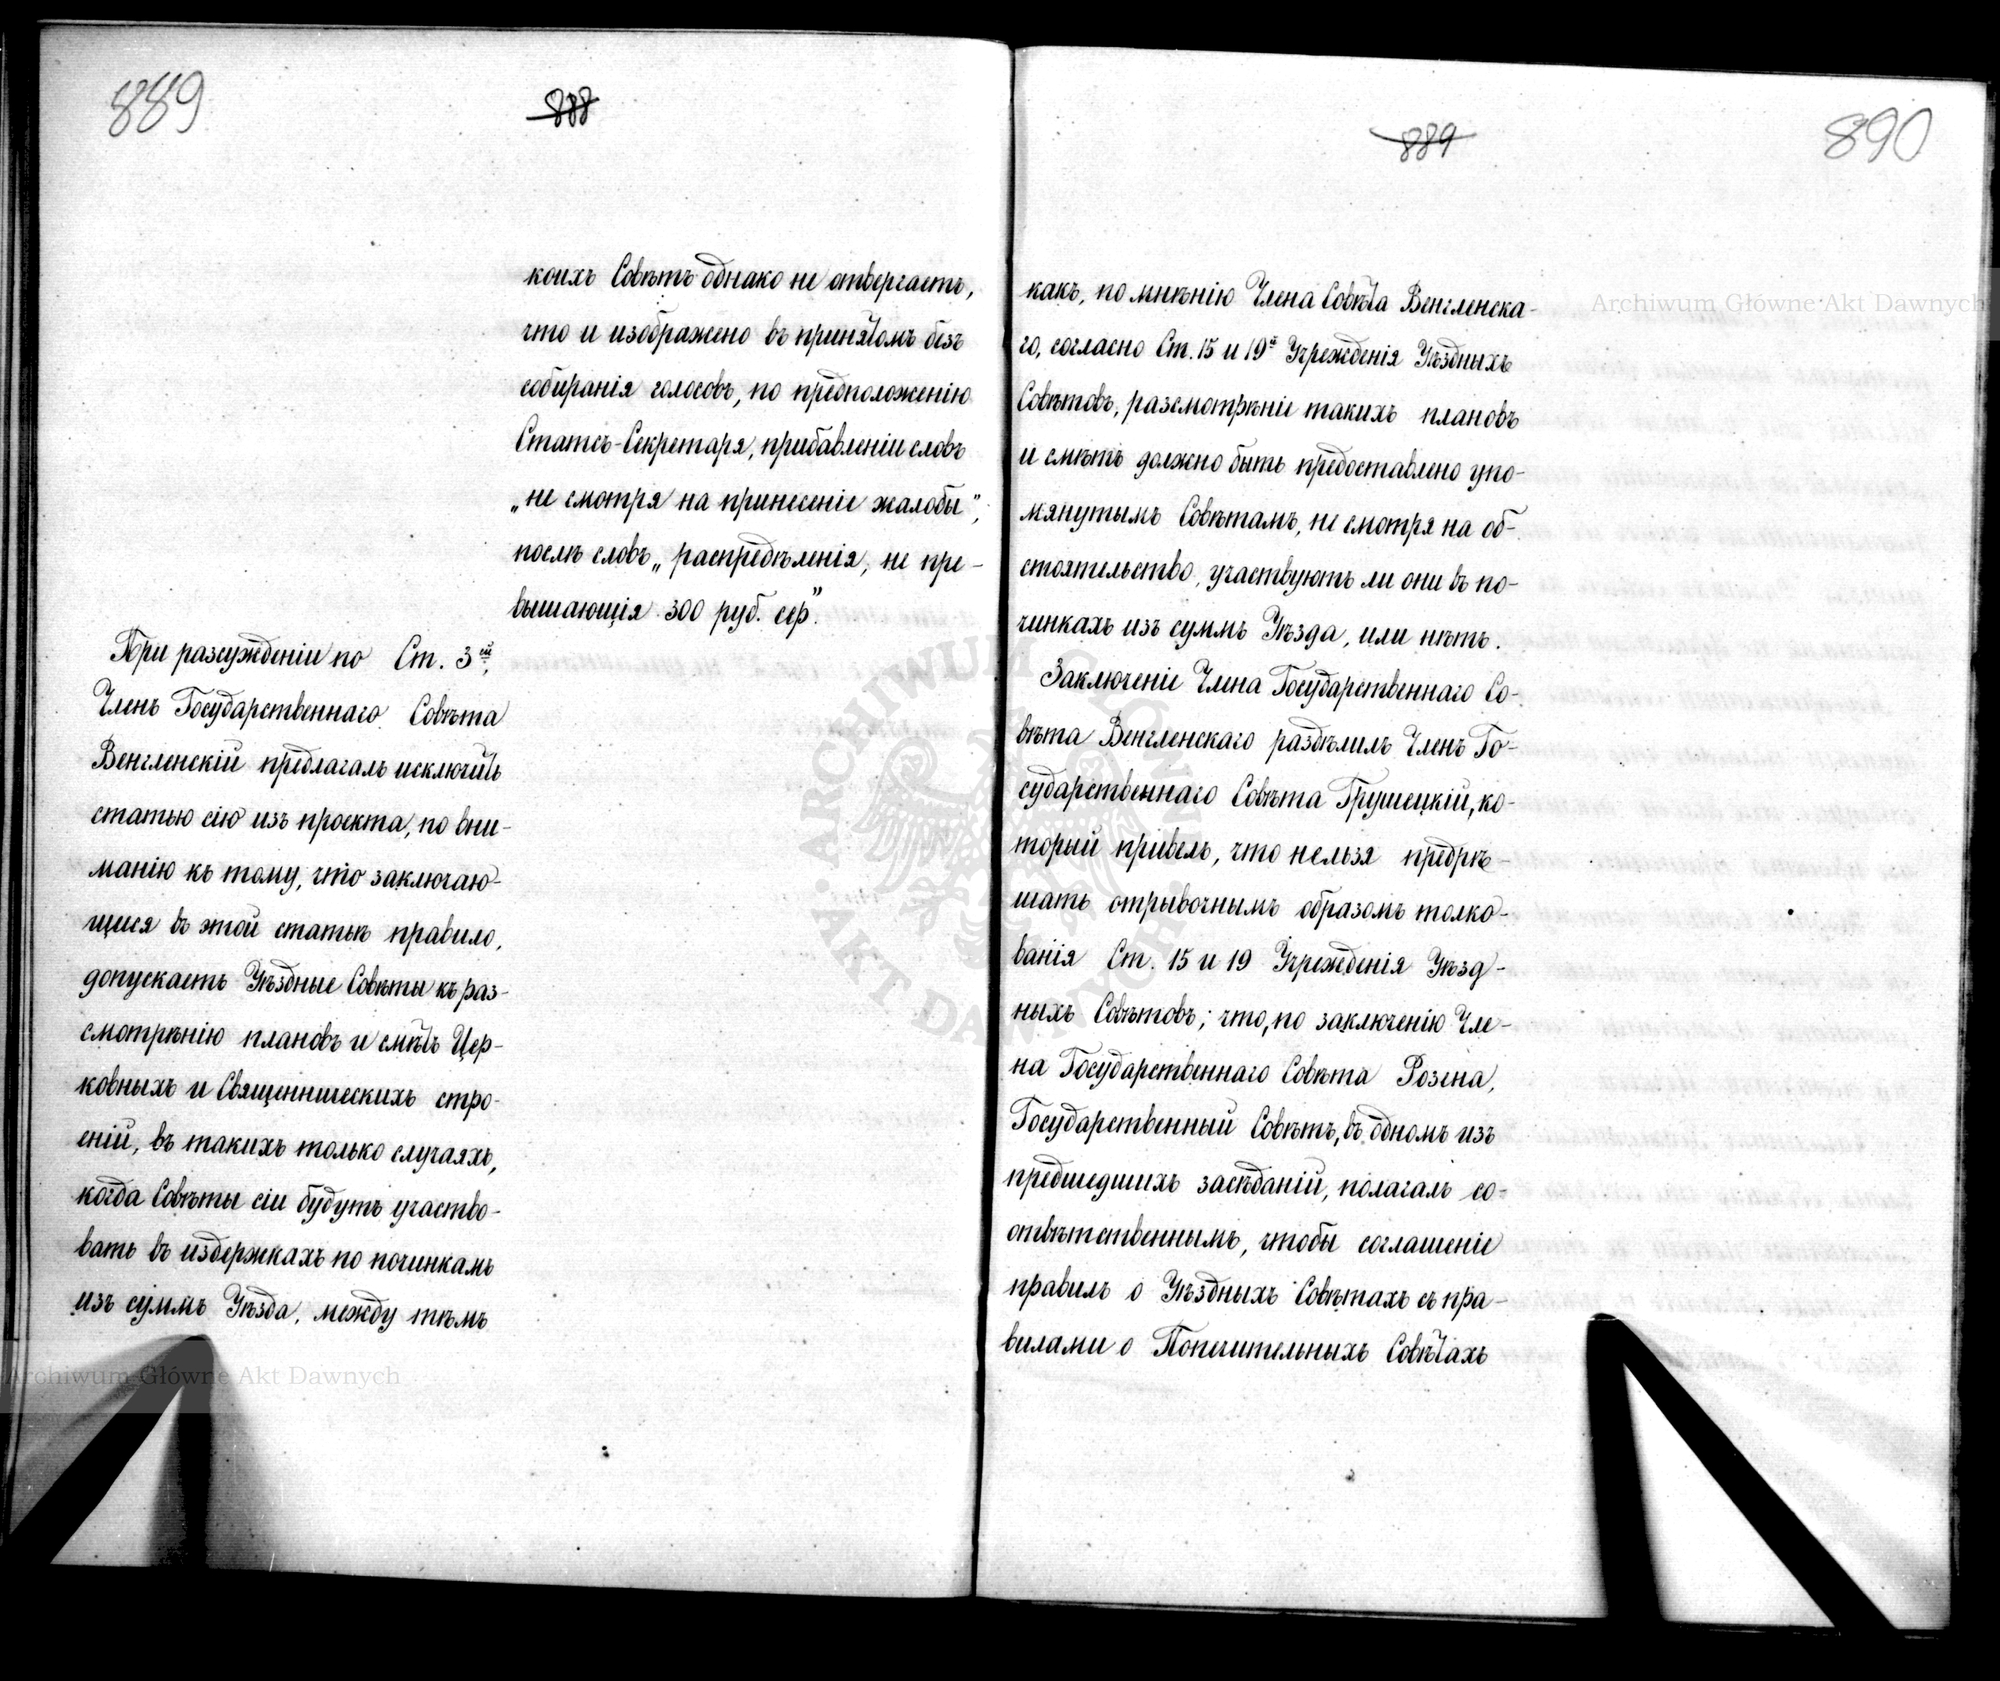 889
888
коихъ Совѣтъ однако не отвергаетъ,
что и изображено въ принятомъ безъ
собиранія голосовъ, по предположенію
Статсъ-Секретаря, прибавленіи словъ
„не смотря на принесеніе жалобы",
послѣ словъ „распредѣленія, не пре-
вышающія 300 руб. сер".
При разсужденіи по Ст. 3ей,
Членъ Государственнаго Совѣта
Венгленскій предлагалъ исключить
статью сію изъ проекта, по вни-
манію къ тому, что заключаю-
щееся въ этой статьѣ правило,
допускаетъ Уѣздные Совѣты къ раз-
смотрѣнію плановъ и смѣтъ Цер-
ковныхъ и Священническихъ стро-
еній, въ такихъ только случаяхъ,
когда Совѣты сіи будутъ участво-
вать въ издержкахъ по починкамъ
изъ суммъ Уѣзда, между тѣмъ
889
890
какъ, по мнѣнію Члена Совѣта Венгленска-
го, согласно Ст. 15 и 19й Учрежденія Уѣздныхъ
Совѣтовъ, разсмотрѣніе такихъ плановъ
и смѣтъ должно быть предоставлено упо-
мянутымъ Совѣтамъ, не смотря на об-
стоятельство, участвуютъ ли они въ по-
чинкахъ изъ суммъ Уѣзда, или нѣтъ.
Заключеніе Члена Государственнаго Со-
вѣта Венгленскаго раздѣлилъ Членъ Го-
сударственнаго Совѣта Грушецкій, ко-
торый привелъ, что нельзя предрѣ-
шать отрывочнымъ образомъ толко-
ванія Ст. 15 и 19 Учрежденія Уѣзд-
ныхъ Совѣтовъ; что, по заключенію Чле-
на Государственнаго Совѣта Розена,
Государственный Совѣтъ, въ одномъ изъ
предшедшихъ засѣданій, полагалъ со-
отвѣтственнымъ, чтобы соглашеніе
правилъ о Уѣздныхъ Совѣтахъ съ пра-
вилами о Попечительныхъ Совѣтахъ
Archiwum Główne Akt Dawnych
Archiwum Główne Akt Dawnych
ARCHIWUM GŁÓWNE AKT DAWNYCH